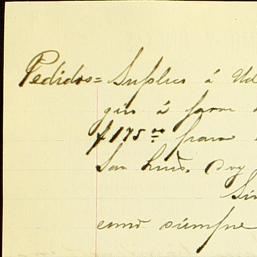 Pedidos = Suplico á Ud
giro á favor
$175 00 para
San Luis. Doy
Sin
como siempre